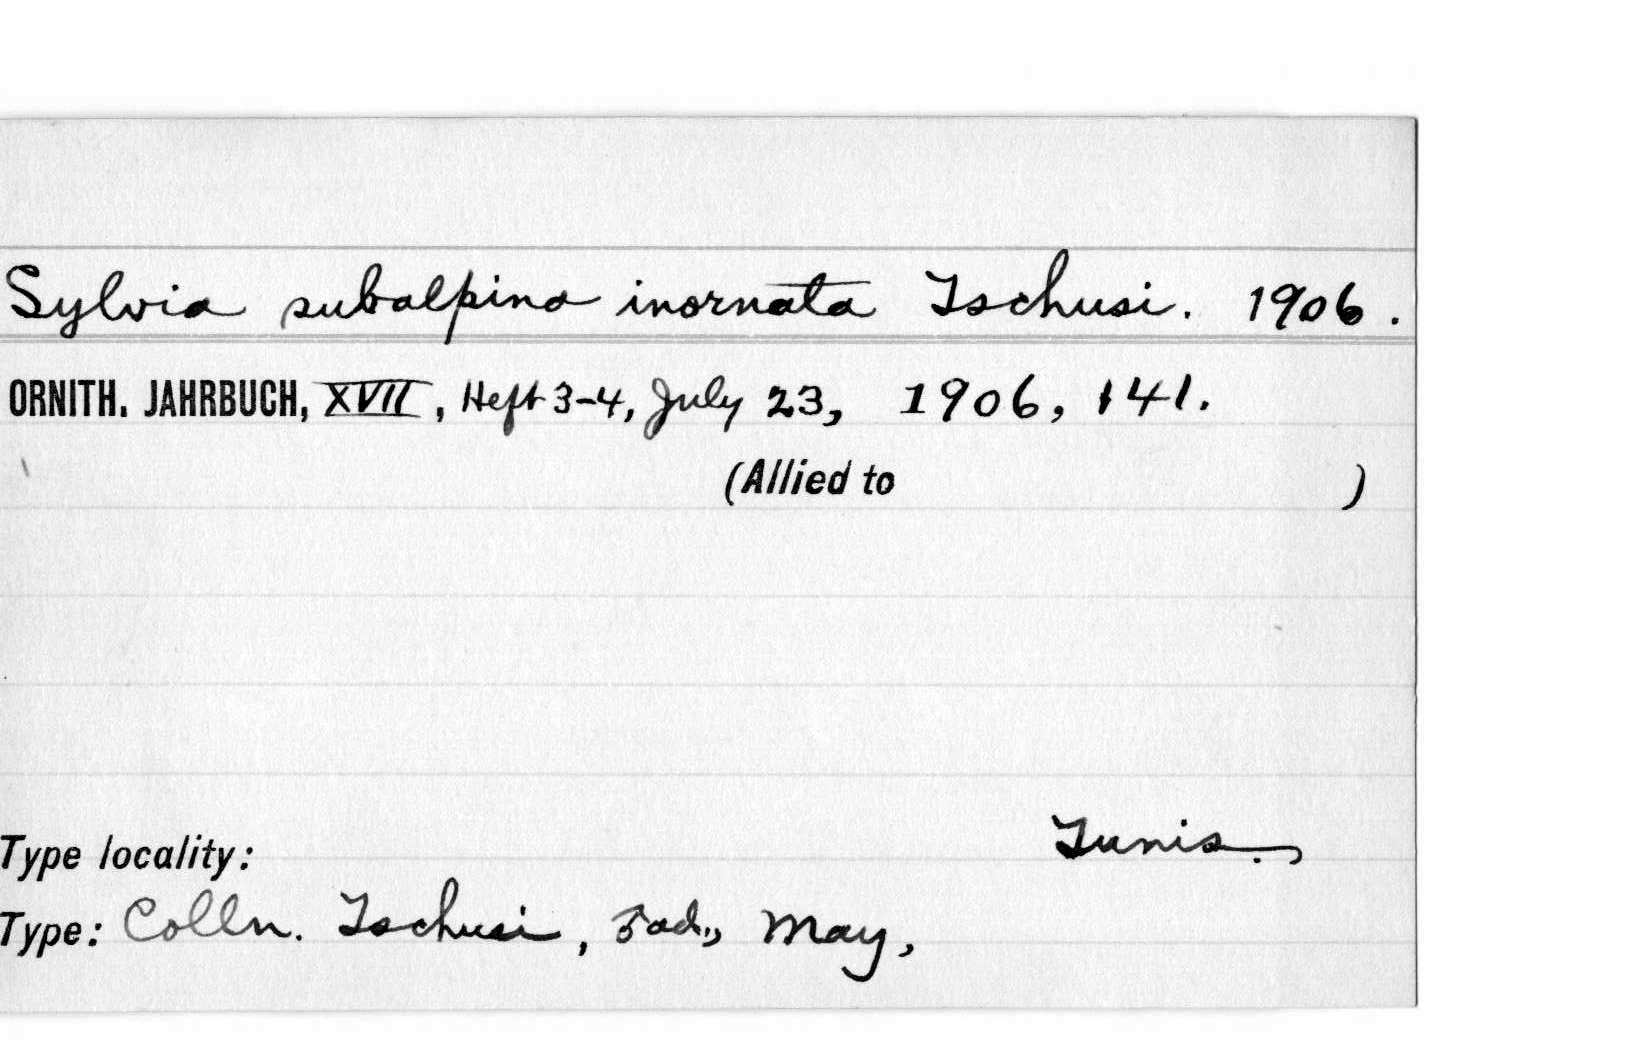 Sylvia subalpina inornata Tschusi. 1906.
ORNITH. JAHRBUCH, XVII, Heft 3-4, July 23, 1906, 141.
(Allied to )
Type locality: Tunis.
Type: Colln. Tschusi, ♂ ad., May,